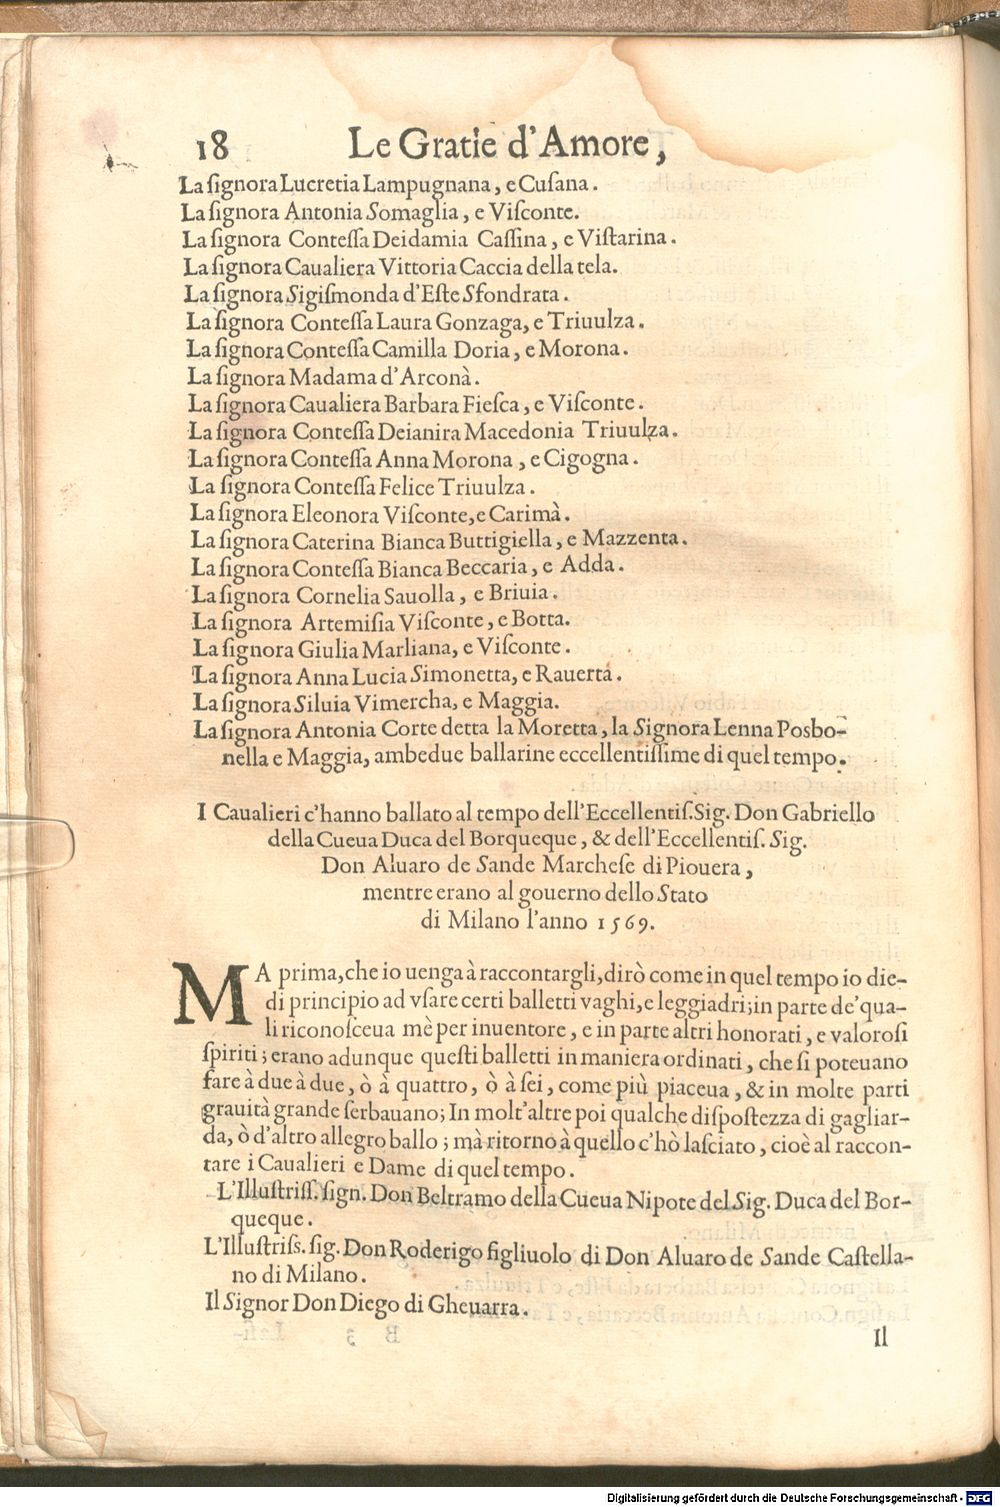 18 Le Gratie d'Amore,
La ſignora Lucretia Lampugnana, e Cuſana.
La ſignora Antonia Somaglia, e Viſconte.
La ſignora Conteſſa Deidamia Caſſina, e Viſtarina.
La ſignora Caualiera Vittoria Caccia della tela.
La ſignora Sigiſmonda d'Eſte Sfondrata.
La ſignora Conteſſa Laura Gonzaga, e Triuulza.
La ſignora Conteſſa Camilla Doria, e Morona.
La ſignora Madama d'Arconà.
La ſignora Caualiera Barbara Fieſca, e Viſconte.
La ſignora Conteſſa Deianira Macedonia Triuulza.
La ſignora Conteſſa Anna Morona, e Cigogna.
La ſignora Conteſſa Felice Triuulza.
La ſignora Eleonora Viſconte, e Carimà.
La ſignora Caterina Bianca Buttigiella, e Mazzenta.
La ſignora Conteſſa Bianca Beccaria, e Adda.
La ſignora Cornelia Sauolla, e Briuia.
La ſignora Artemiſia Viſconte, e Botta.
La ſignora Giulia Marliana, e Viſconte.
La ſignora Anna Lucia Simonetta, e Rauerta.
La ſignora Siluia Vimercha, e Maggia.
La ſignora Antonia Corte detta la Moretta, la Signora Lenna Posbo-
nella e Maggia, ambedue ballarine eccellentiſſime di quel tempo.
I Caualieri c'hanno ballato al tempo dell'Eccellentiſ. Sig. Don Gabriello
della Cueua Duca del Borqueque, & dell'Eccellentiſ. Sig.
Don Aluaro de Sande Marcheſe di Piouera,
mentre erano al gouerno dello Stato
di Milano l'anno 1569.
MA prima, che io uenga à raccontargli, dirò come in quel tempo io die-
di principio ad vſare certi balletti vaghi, e leggiadri; in parte de' qua-
li riconoſceua mè per inuentore, e in parte altri honorati, e valoroſi
ſpiriti; erano adunque queſti balletti in maniera ordinati, che ſi poteuano
fare à due à due, ò à quattro, ò à ſei, come più piaceua, & in molte parti
grauità grande ſerbauano; In molt'altre poi qualche diſpoſtezza di gagliar-
da, ò d'altro allegro ballo; mà ritorno à quello c'hò laſciato, cioè al raccon-
tare i Caualieri e Dame di quel tempo.
L'Illuſtriſſ. ſign. Don Beltramo della Cueua Nipote del Sig. Duca del Bor-
queque.
L'Illuſtriſs. ſig. Don Roderigo figliuolo di Don Aluaro de Sande Caſtella-
no di Milano.
Il Signor Don Diego di Gheuarra.
Il
Digitalisierung gefördert durch die Deutsche Forschungsgemeinschaft - DFG